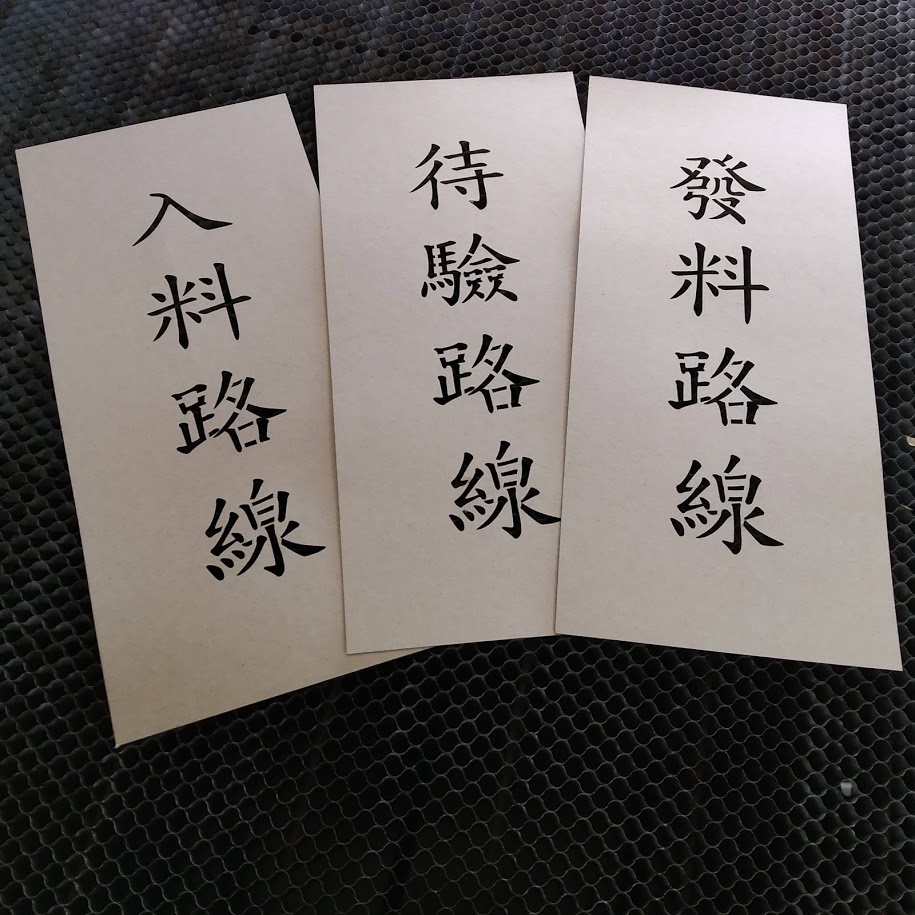 入料路線
待驗路線
發料路線